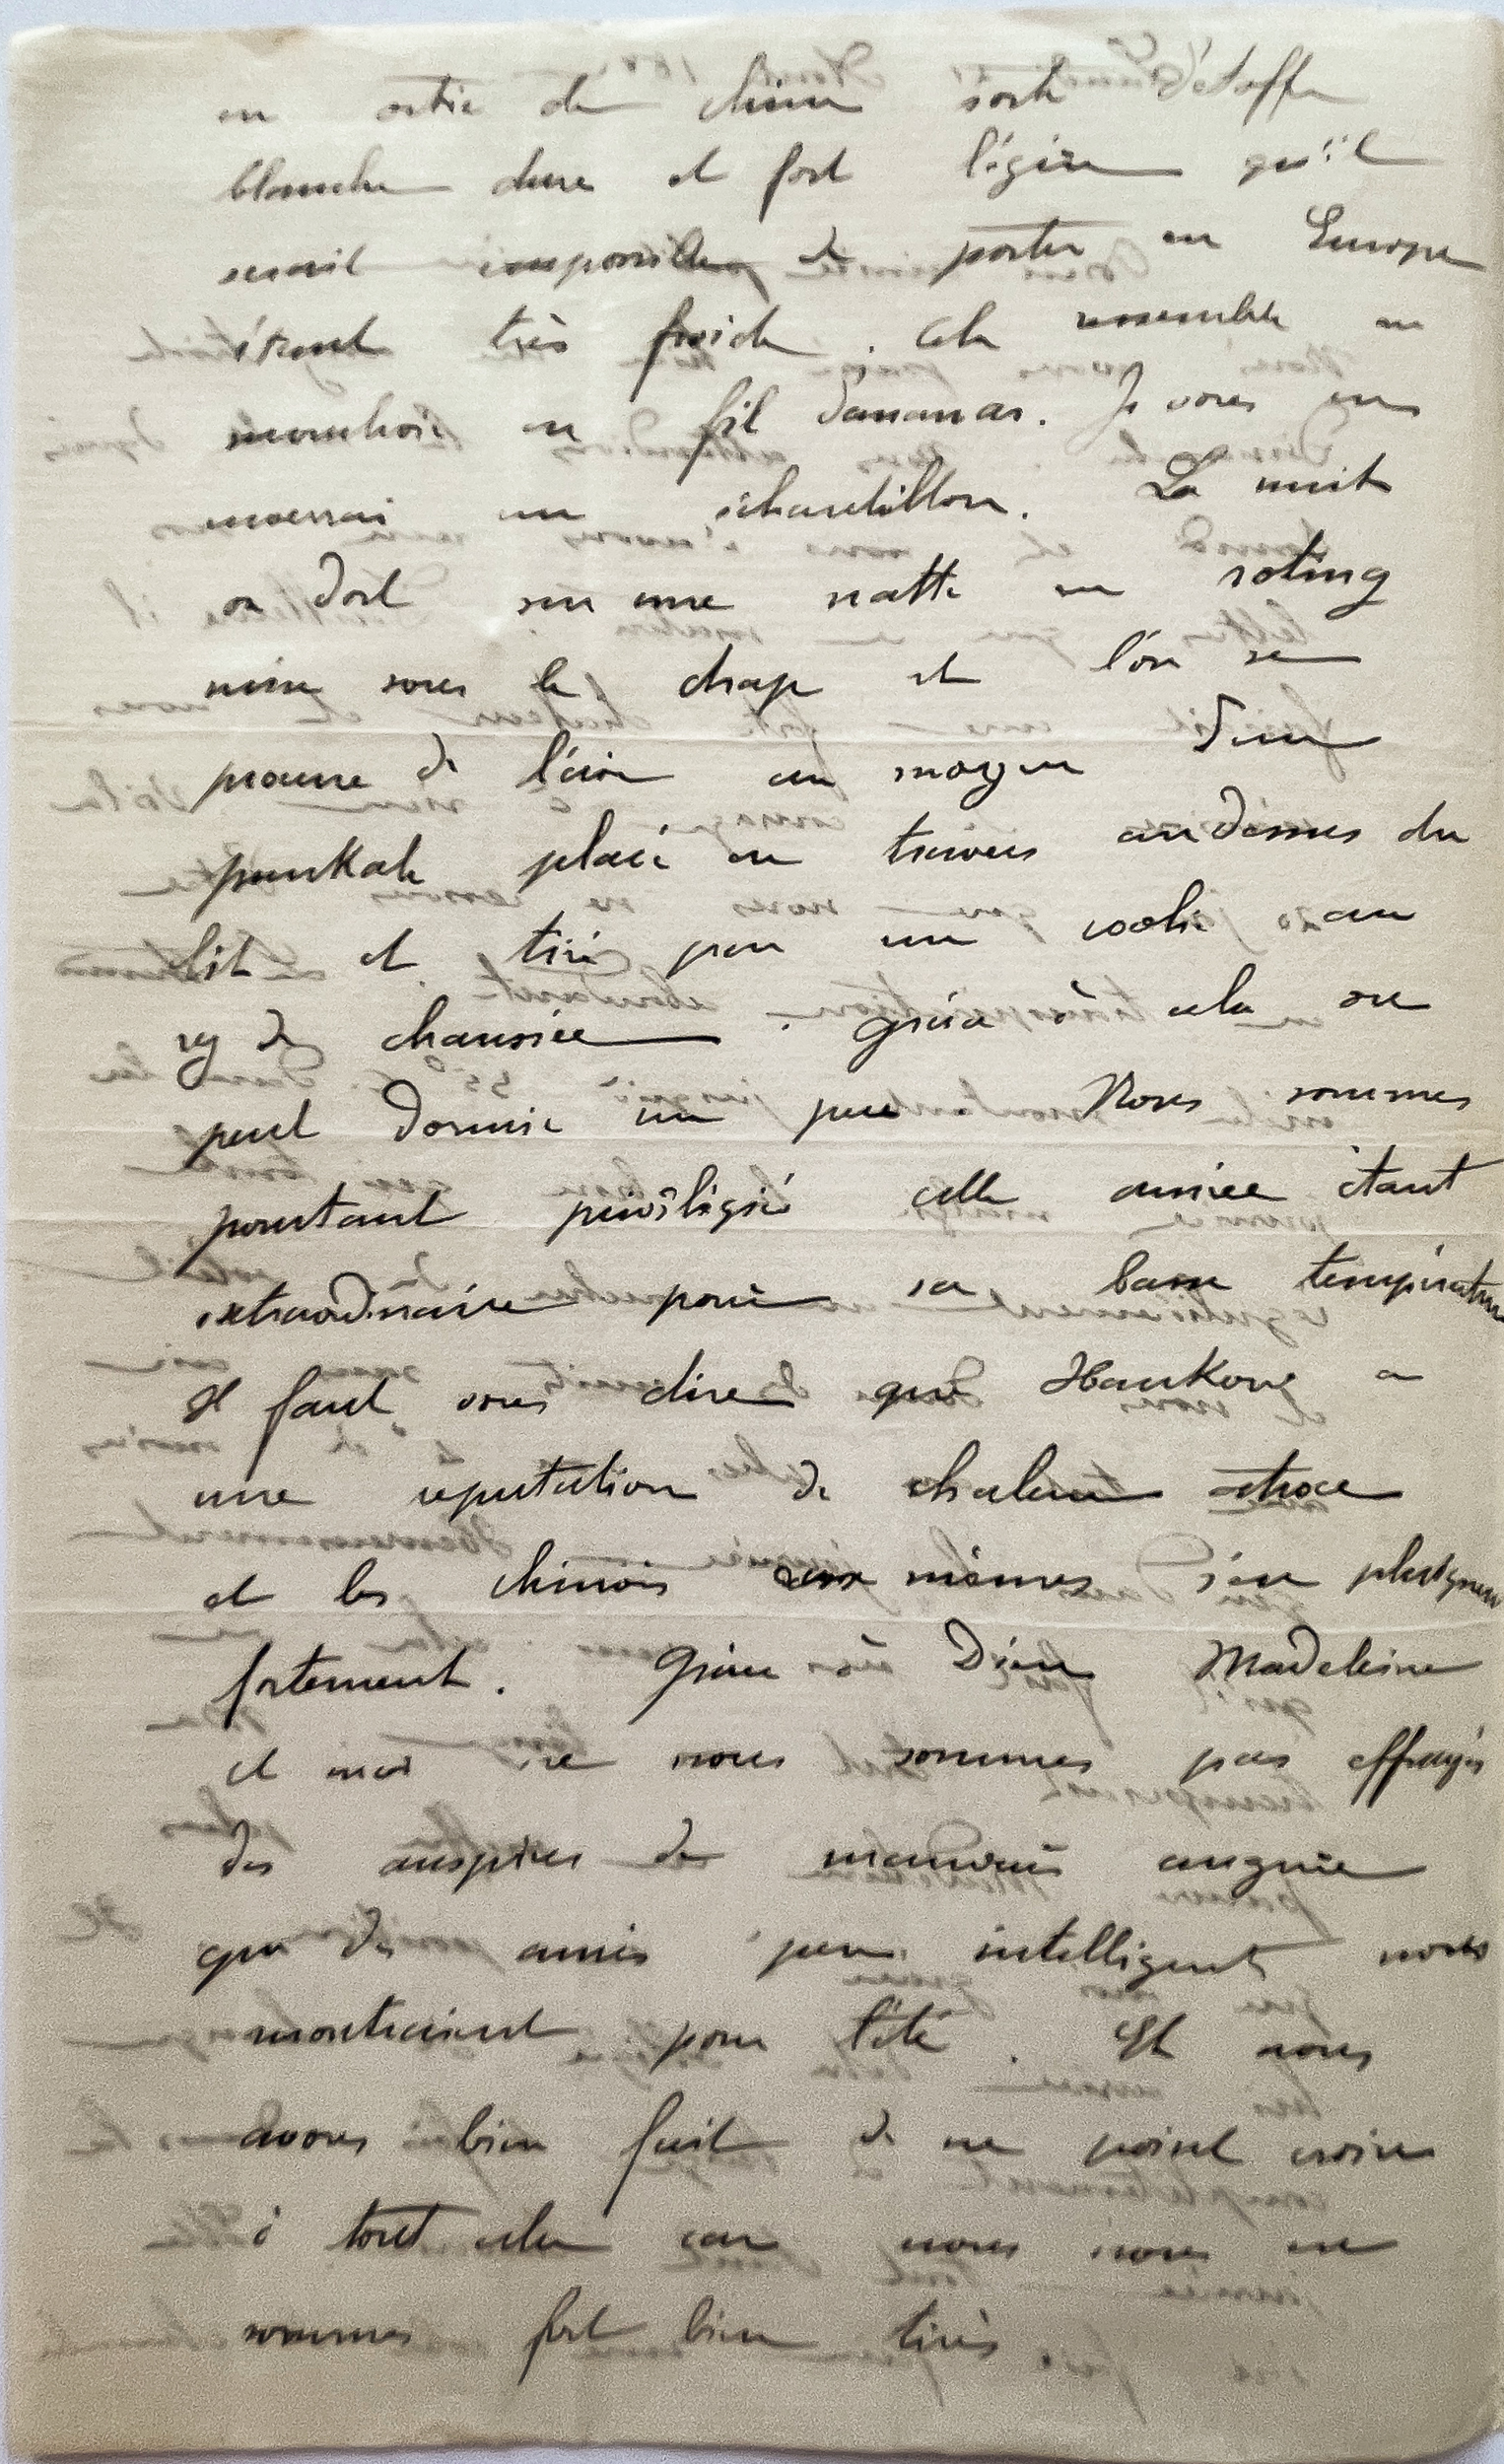 en ortie de chine sorte d'étoffe
blanche dure et fort légère qu'il
serait impossible de porter en Europe
étant très froide. Cela ressemble au
mouchoir en fil d'ananas. Je vous en
enverrai un échantillon. La nuit
on dort sur une natte en roting
mise sous le drap et l'on se
procure de l'air au moyen d'un
punkah placé en travers au dessus du
lit et tiré par un coolie au
rez de chaussée. grâce à cela on
peut dormir un peu Nous sommes
pourtant privilégié cette année étant
extraordinaire pour sa basse température
Il faut vous dire que Hankow a
une reputation de chaleur atroce
et les chinois eux mêmes s'en plaignent
fortement. Grâce à Dieu Madeleine
et moi ne nous sommes pas effrayés
des auspices de mauvais augure
que des amis peu intelligents nous
montraient pour l'été. Et nous
avons bien fait de ne point croire
à tout cela car nous nous en
sommes fort bien tirés